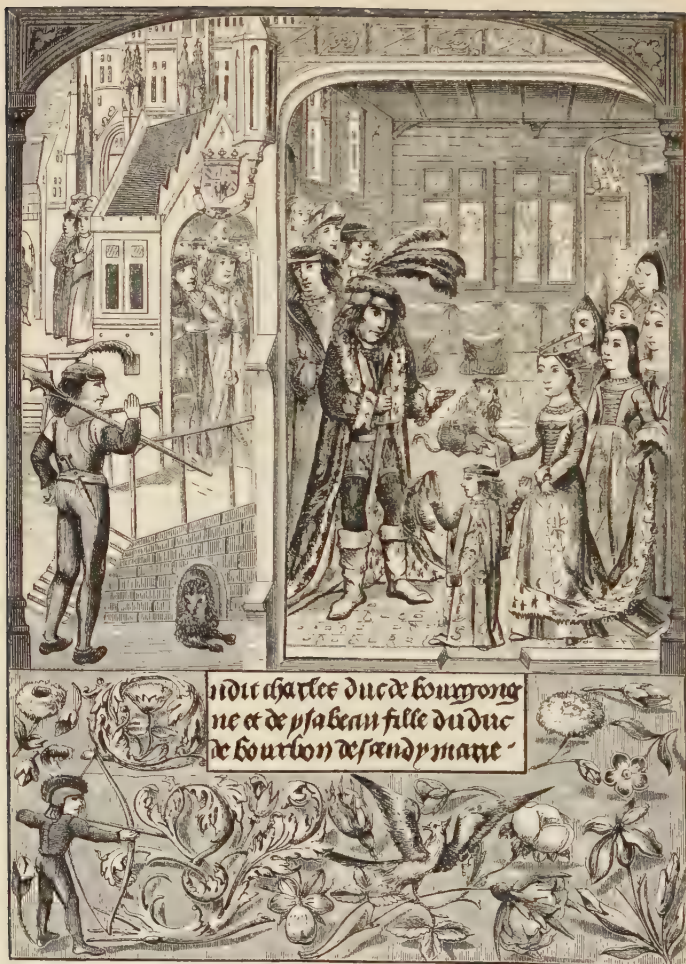 udit charles duc de bourgong
ne et de ysabeau fille du duc
de bourbon descendy marie